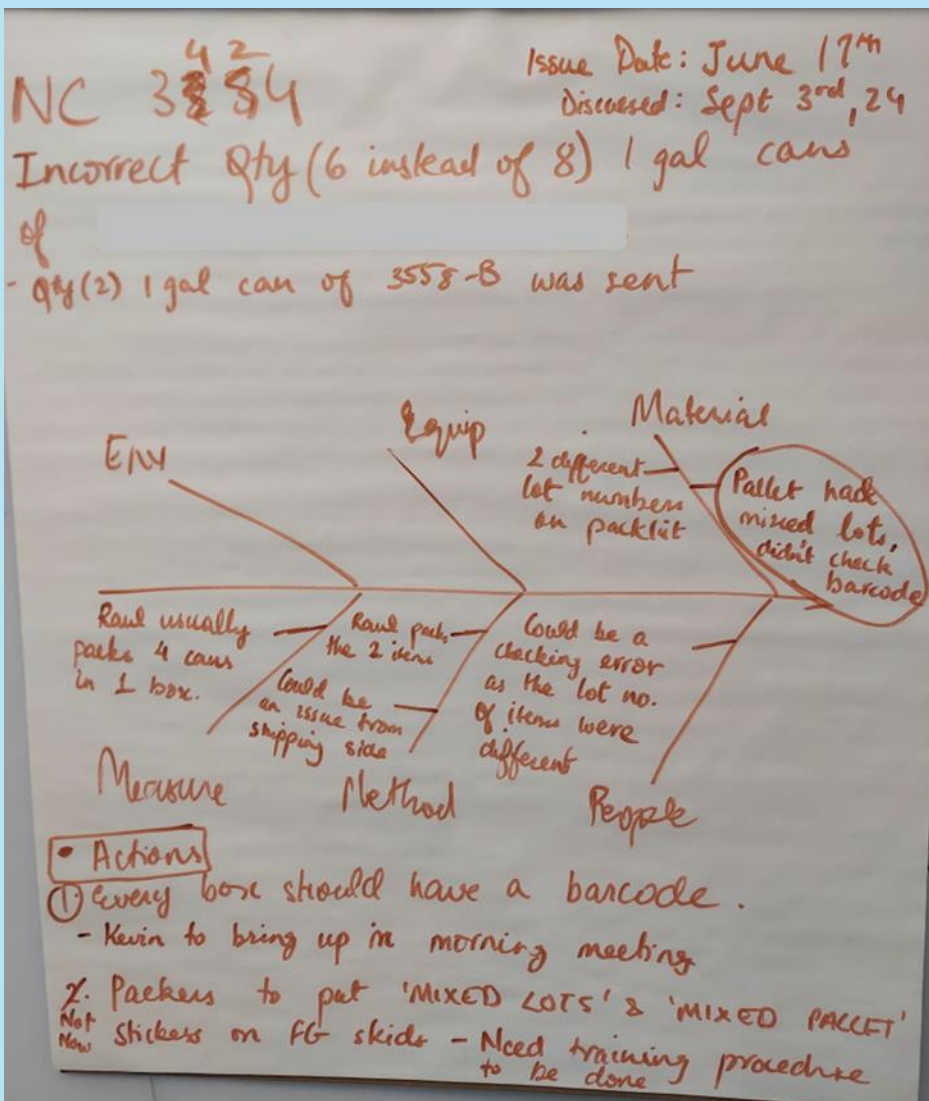 4 2
NC 3884
Issue Date: June 17th
Discussed: Sept 3rd, 24
Incorrect Qty (6 instead of 8) 1 gal cans
of
- Qty (2) 1 gal can of 3558-B was sent
Env
Equip
Material
2 different
lot numbers
on packlist
Pallet had
mixed lots,
didn't check
barcode
Raul usually
packs 4 cans
in 1 box.
Raul packs
the 2 items
Could be
an issue from
shipping side
Could be a
checking error
as the lot no.
of items were
different
Measure
Method
People
• Actions
① Every box should have a barcode.
- Kevin to bring up in morning meeting
2. Packers to put 'MIXED LOTS' & 'MIXED PALLET'
Not
Now
stickers on FG skids - Need training procedure
to be done